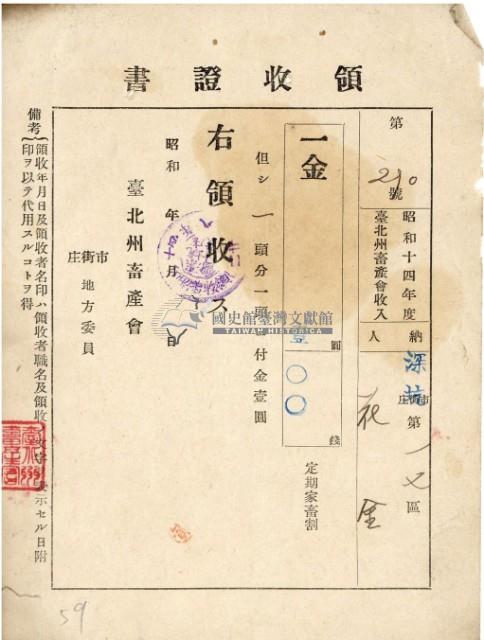 領收證書
第210號
昭和十四年度
臺北州畜產會收入
納人
深坑
市街庄第 區
一金
圓
○○
錢
定期家畜割
但シ一頭分一頭 付金壹圓
右領收ス
昭和 年 月 日
臺北州畜產會
市街庄地方委員
備考
領收年月日及領收者名印ハ領收者職名及領收 示セル日附
印ヲ以テ代用スルコトヲ得
國史館臺灣文獻館
TAIWAN HISTORICA
59